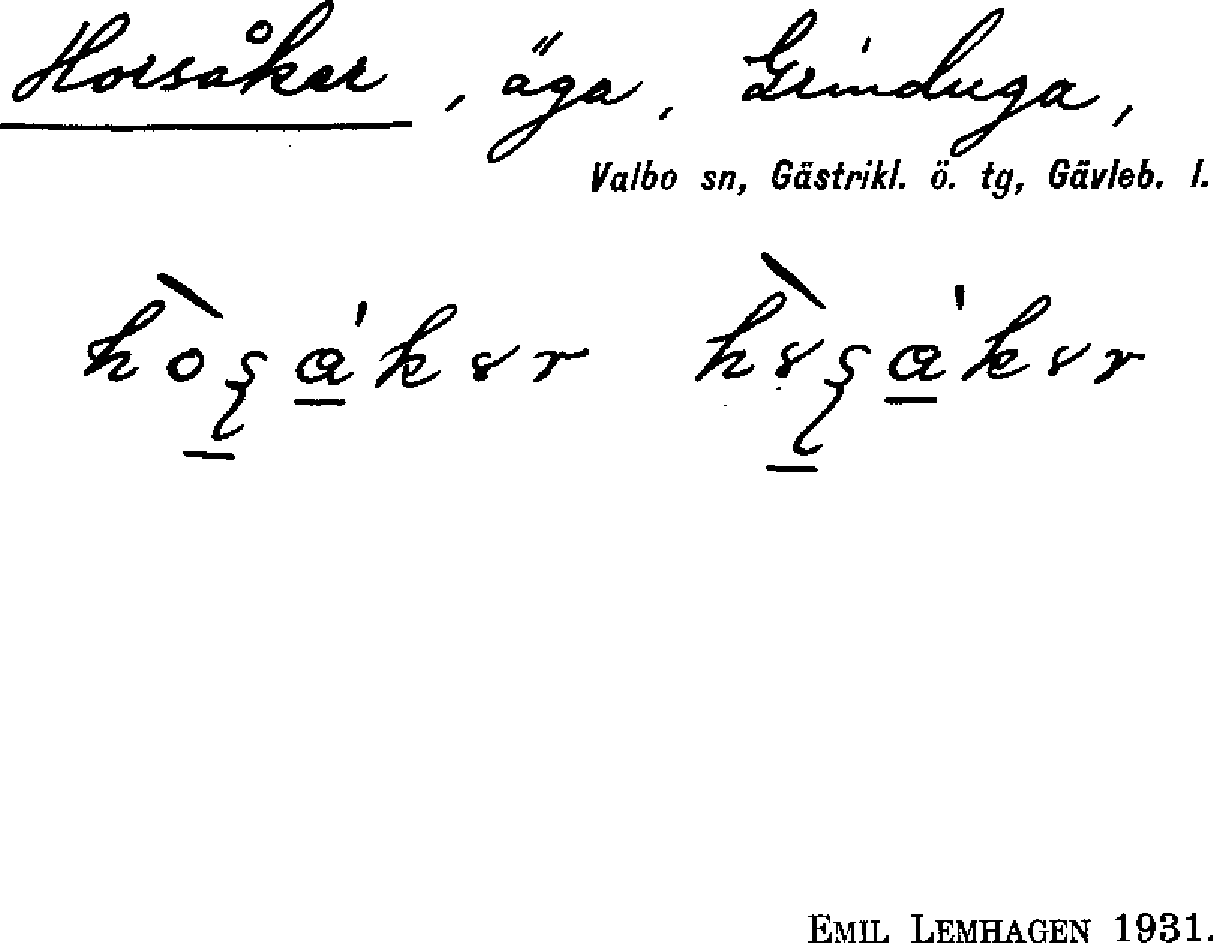 Horsåker, äga, Grinduga,
Valbo sn, Gästrikl. ö. tg, Gävleb. l.
EMIL LEMHAGEN 1931.